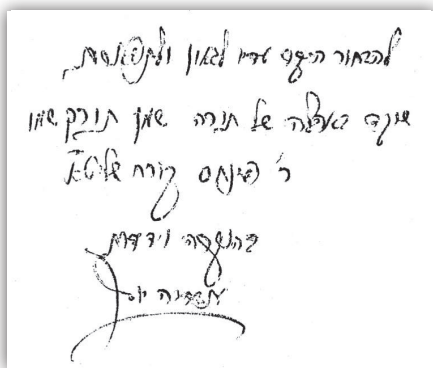 להבחור היקר עדיו לגאון ולתפארת
שוקד באהלה של תורה שמן תורק שמו
ר' פינחס קורח שליט"א
בהוקרה וידידות
עובדיה יוסף